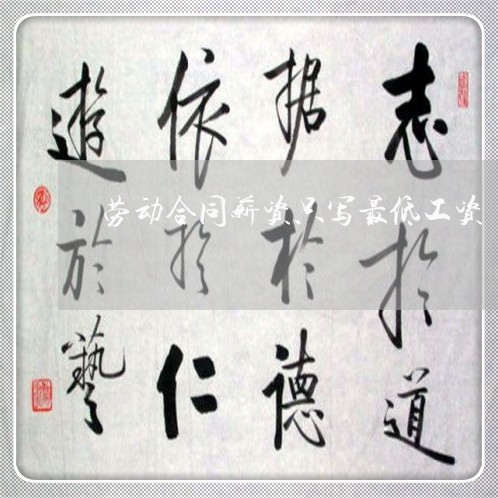 志扵道
据於德
依扵仁
遊於藝
劳动合同薪资只写最低工资